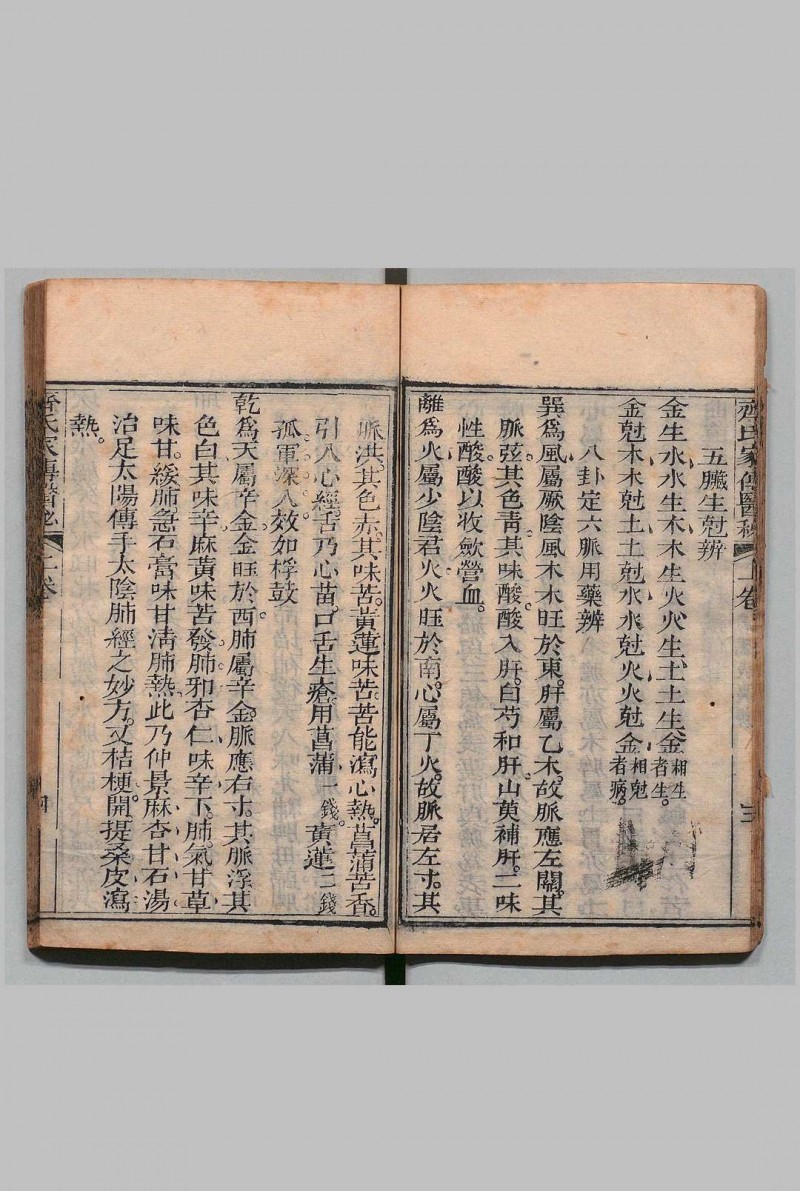 齊氏家傳醫秘 上卷 三
五臟生尅辨
金生水水生木木生火火生土土生金相生者生。
金尅木木尅土土尅水水尅火火尅金相尅者病。
八卦定六脈用藥辨
巽爲風屬厥陰風木木旺於東。肝屬乙木。故脈應左關。其
脈弦。其色青。其味酸。酸入肝。白芍和肝。山萸補肝。二味
性酸。酸以收歛營血。
離爲火屬少陰君火火旺於南。心屬丁火。故脈居左寸。其
脈洪。其色赤。其味苦。黃蓮味苦。苦能瀉心熱。菖蒲苦香。
引入心經。舌乃心苗。口舌生瘡。用菖蒲一錢。黃蓮三錢
孤軍深入。效如桴鼓
乾爲天屬辛金。金旺於西。肺屬辛金。脈應右寸。其脈浮。其
色白。其味辛。麻黃味苦。發肺邪。杏仁味辛。下肺氣。甘草
味甘。緩肺急。石膏味甘。清肺熱。此乃仲景麻杏甘石湯
治足太陽傳手太陰肺經之妙方。又桔梗。開提。桑皮瀉
熱。
齊氏家傳醫秘 上卷 四